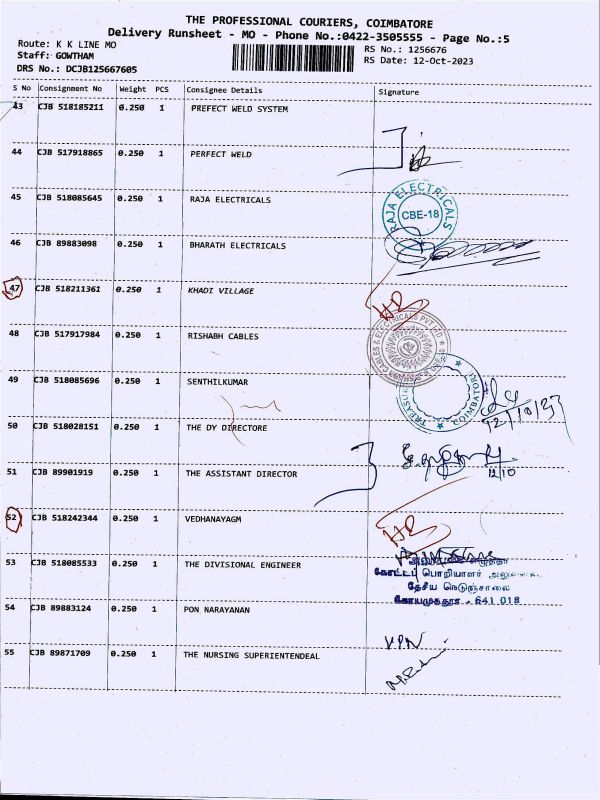 THE PROFESSIONAL COURIERS, COIMBATORE
Delivery Runsheet - MO - Phone No.:0422-3505555 - Page No.:5
Route: K K LINE MO
Staff: GOWTHAM
DRS No.: DCJB125667605
RS No.: 1256676
RS Date: 12-Oct-2023
S No Consignment No Weight PCS Consignee Details Signature
43 CJB 518185211 0.250 1 PREFECT WELD SYSTEM
44 CJB 517918865 0.250 1 PERFECT WELD
45 CJB 518085645 0.250 1 RAJA ELECTRICALS
RAJA ELECTRICALS
CBE-18
46 CJB 89883098 0.250 1 BHARATH ELECTRICALS
47 CJB 518211361 0.250 1 KHADI VILLAGE
48 CJB 517917984 0.250 1 RISHABH CABLES
CABLES & ELECTRICALS PVT LTD
49 CJB 518085696 0.250 1 SENTHILKUMAR
COIMBATORE
12/10/23
50 CJB 518028151 0.250 1 THE DY DIRECTORE
12/10
51 CJB 89901919 0.250 1 THE ASSISTANT DIRECTOR
52 CJB 518242344 0.250 1 VEDHANAYAGM
53 CJB 518085533 0.250 1 THE DIVISIONAL ENGINEER
கோட்டப் பொறியாளர்
தேசிய நெடுஞ்சாலை
கோயமுத்தூர் - 641 018
54 CJB 89883124 0.250 1 PON NARAYANAN
VPN
55 CJB 89871709 0.250 1 THE NURSING SUPERIENTENDEAL